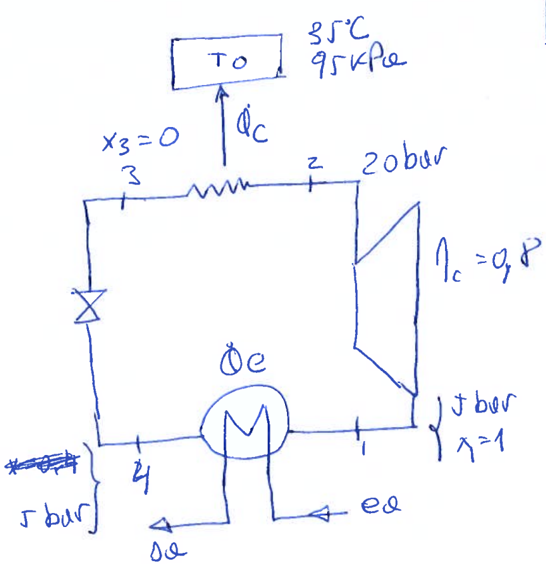 35°C
95 kPa
To
Q̇c
x3 = 0
3
2
20 bar
ηc = 0,8
Q̇e
5 bar
x = 1
1
4
5 bar
ea
sa